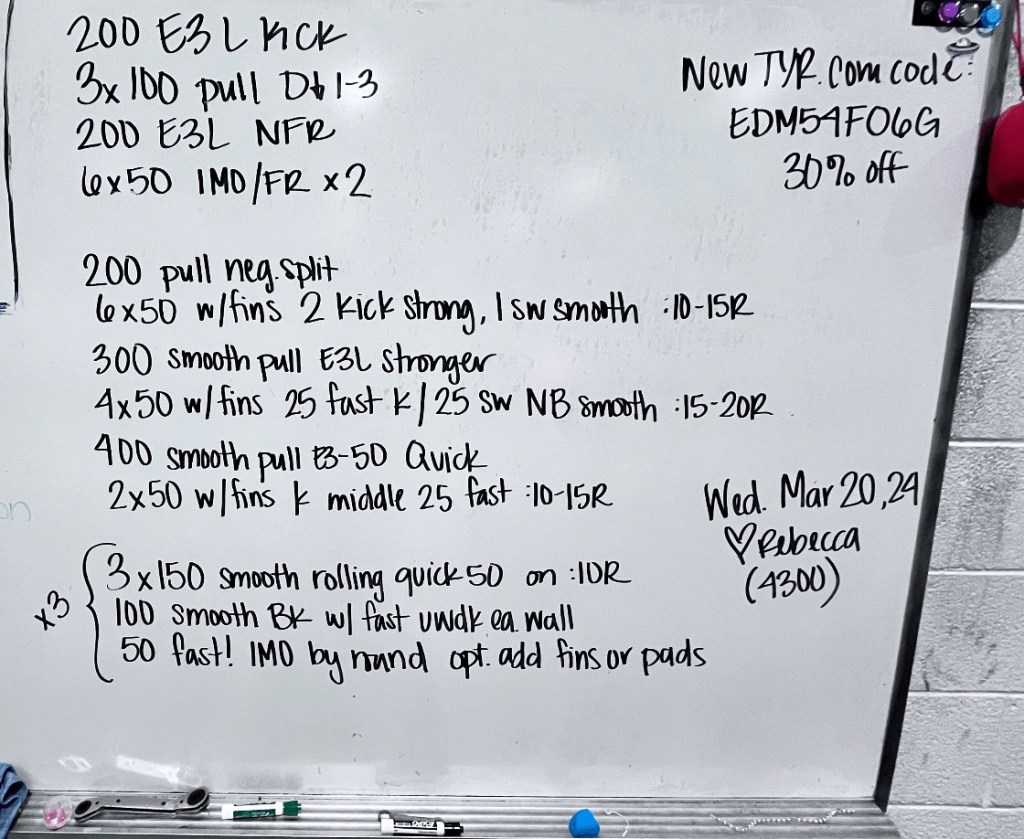 200 E3L Kick
3x100 pull D↓1-3
200 E3L NFR
6x50 IMO/FR x2
200 pull neg.split
6x50 w/fins 2 kick strong, 1 sw smooth :10-15R
300 smooth pull E3L stronger
4x50 w/fins 25 fast k/25 sw NB smooth :15-20R
400 smooth pull E3-50 Quick
2x50 w/fins k middle 25 fast :10-15R
x3
3x150 smooth rolling quick 50 on :10R
100 smooth BK w/ fast uwdk ea. wall
50 fast! IMO by round opt. add fins or pads
New TYR.com code:
EDM54FO6G
30% off
Wed. Mar 20,24
♡Rebecca
(4300)